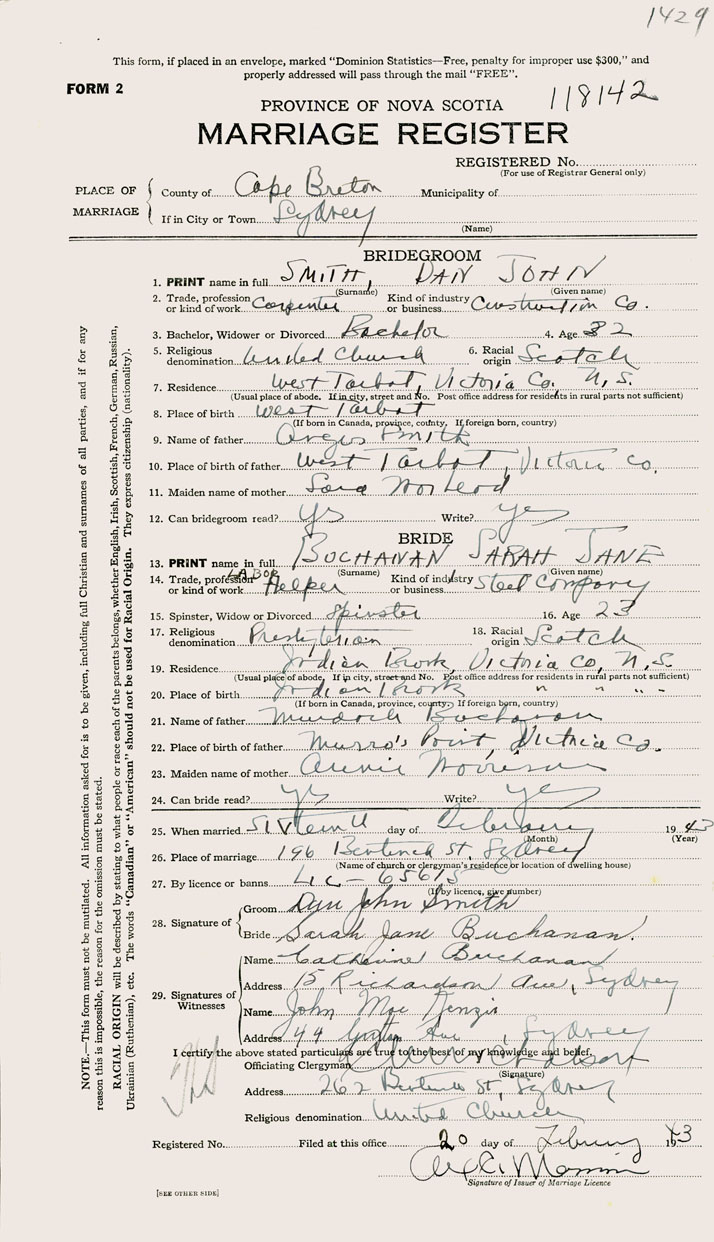 1429
This form, if placed in an envelope, marked "Dominion Statistics—Free, penalty for improper use $300," and
properly addressed will pass through the mail "FREE".
FORM 2
118142
PROVINCE OF NOVA SCOTIA
MARRIAGE REGISTER
REGISTERED No.
(For use of Registrar General only)
PLACE OF MARRIAGE
County of Cape Breton Municipality of
If in City or Town Sydney
(Name)
BRIDEGROOM
1. PRINT name in full SMITH, DAN JOHN
(Surname) (Given name)
2. Trade, profession or kind of work Carpenter Kind of industry or business Construction Co.
3. Bachelor, Widower or Divorced Bachelor 4. Age 32
5. Religious denomination United Church 6. Racial origin Scotch
7. Residence West Tarbot, Victoria Co. N.S.
(Usual place of abode. If in city, street and No. Post office address for residents in rural parts not sufficient)
8. Place of birth West Tarbot
(If born in Canada, province, county. If foreign born, country)
9. Name of father Angus Smith
10. Place of birth of father West Tarbot, Victoria Co.
11. Maiden name of mother Sara McLeod
12. Can bridegroom read? yes Write? yes
BRIDE
13. PRINT name in full BUCHANAN SARAH JANE
(Surname) (Given name)
14. Trade, profession or kind of work LABOR Helper Kind of industry or business Steel Company
15. Spinster, Widow or Divorced Spinster 16. Age 23
17. Religious denomination Presbyterian 18. Racial origin Scotch
19. Residence Indian Brook, Victoria Co, N.S.
(Usual place of abode. If in city, street and No. Post office address for residents in rural parts not sufficient)
20. Place of birth Indian Brook " " " "
(If born in Canada, province, county. If foreign born, country)
21. Name of father Murdoch Buchanan
22. Place of birth of father Munro's Point, Victoria Co.
23. Maiden name of mother Annie Morrison
24. Can bride read? yes Write? yes
25. When married Sixteenth day of February 1943
(Month) (Year)
26. Place of marriage 196 Bentinck St, Sydney
(Name of church or clergyman's residence or location of dwelling house)
27. By licence or banns Lic - 65615
(If by licence, give number)
28. Signature of
Groom Dan John Smith
Bride Sarah Jane Buchanan.
29. Signatures of Witnesses
Name Catherine Buchanan
Address 15 Richardson Ave, Sydney
Name John Mac Kenzie
Address 44 Ave, Sydney
I certify the above stated particulars are true to the best of my knowledge and belief.
Officiating Clergyman
(Signature)
Address 262 Bentinck St, Sydney
Religious denomination United Church
Registered No. Filed at this office 20 day of February 1943
Signature of Issuer of Marriage Licence
[SEE OTHER SIDE]
NOTE.—This form must not be mutilated. All information asked for is to be given, including full Christian and surnames of all parties, and if for any
reason this is impossible, the reason for the omission must be stated.
RACIAL ORIGIN will be described by stating to what people or race each of the parents belongs, whether English, Irish, Scottish, French, German, Russian,
Ukrainian (Ruthenian), etc. The words "Canadian" or "American" should not be used for Racial Origin. They express citizenship (nationality).